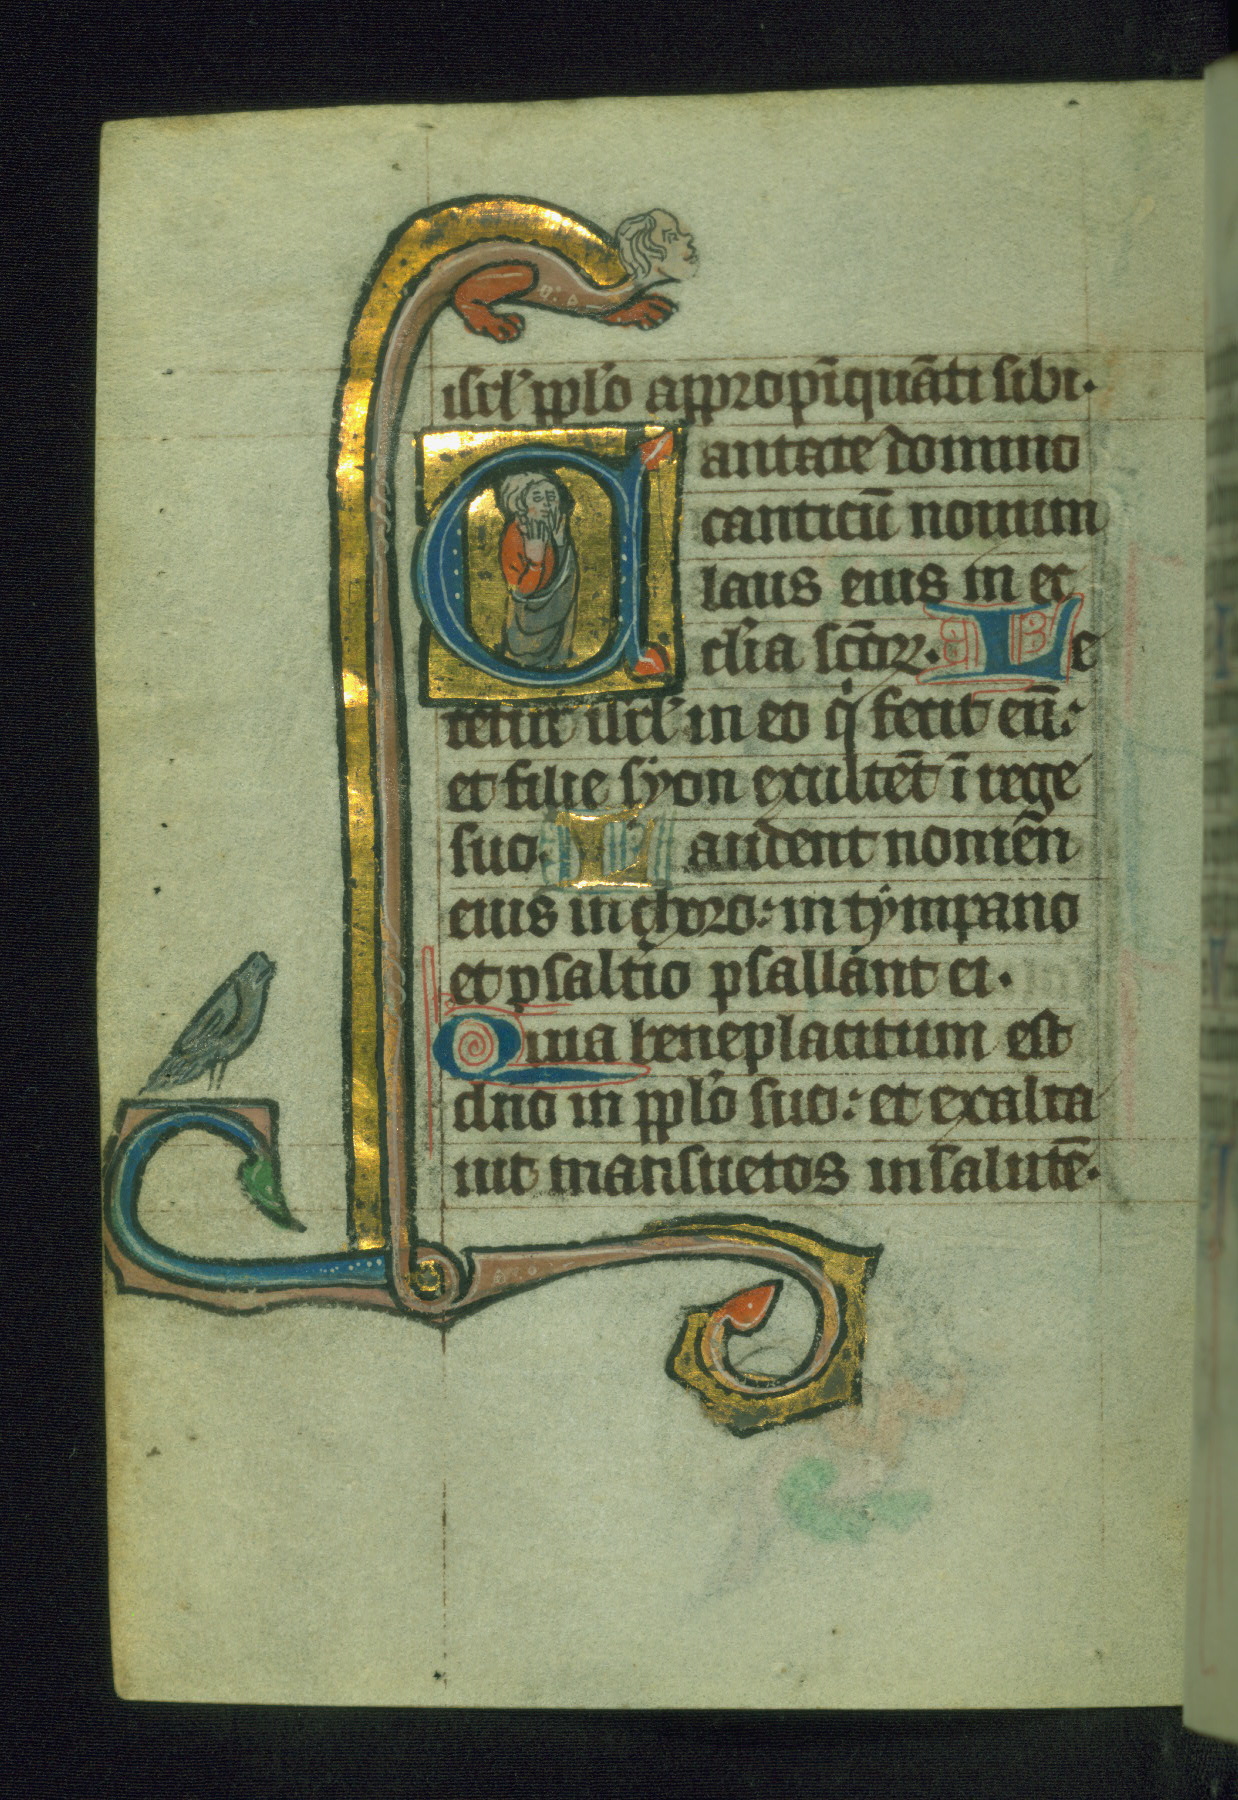 isrl' pplo appropīquāti sibi.
Cantate domino
canticū nouum
laus eius in ec
clīa sctōꝝ. Le
tetur isrl' in eo qi fecit eū:
et filie syon exultēt ī rege
suo. Laudent nomēn
eius in choro: in tympano
et psaltīo psallant ei.
Quia beneplacitum est
dño in pplo suo: et exalta
uit mansuetos in salutē.